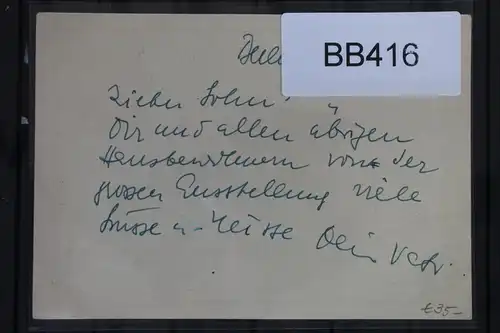 BB416
Lieber Sohn!
Dir und allen übrigen
Hausbewohnern von der
grossen Ausstellung viele
Grüsse u. Küsse Dein Vater.
€35-